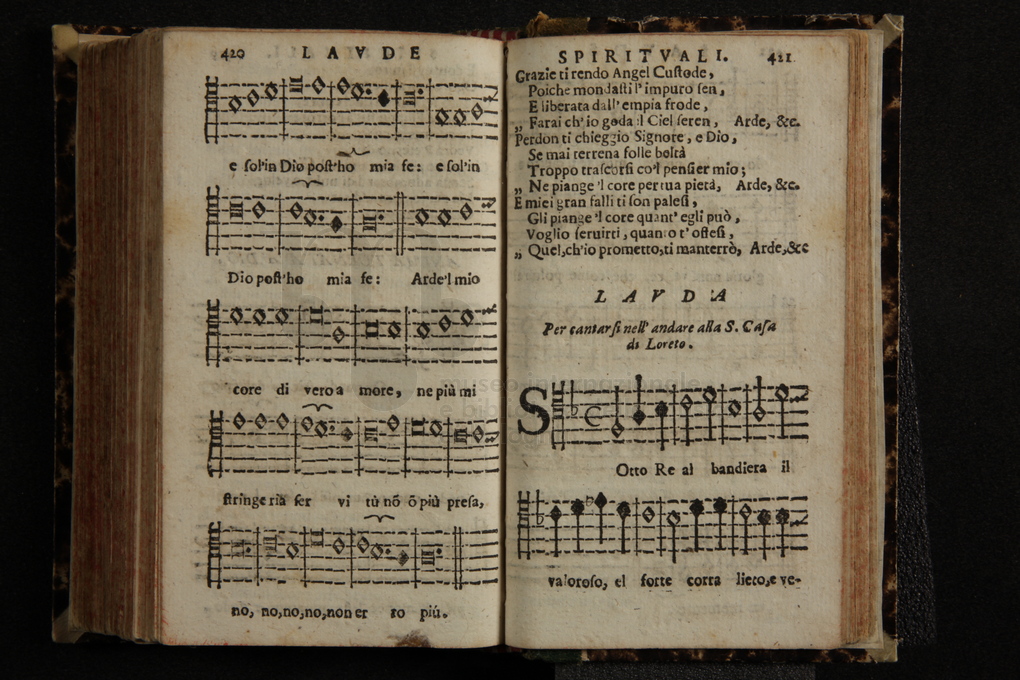 420 LAVDE
e sol'in Dio post'ho mia fe: e sol'in
Dio post'ho mia fe: Arde'l mio
core di vero a more, ne più mi
stringe ria ser vi tù nõ õ più presa,
no, no, no, no, non er ro più.
SPIRITVALI. 421
Grazie ti rendo Angel Custode,
Poiche mondasti l'impuro sen,
E liberata dall'empia frode,
„ Farai ch'io goda il Ciel seren, Arde, &c.
Perdon ti chieggio Signore, e Dio,
Se mai terrena folle beltà
Troppo trascorsi co'l pensier mio;
„ Ne piange 'l core per tua pietà, Arde, &c.
E miei gran falli ti son palesi,
Gli piange 'l core quant' egli può,
Voglio seruirti, quanto t'offesi,
„ Quel, ch'io prometto, ti manterrò, Arde, &c
LAVDA
Per cantarsi nell'andare alla S. Casa
di Loreto.
SOtto Re al bandiera il
valoroso, el forte corra lieto, e ve-